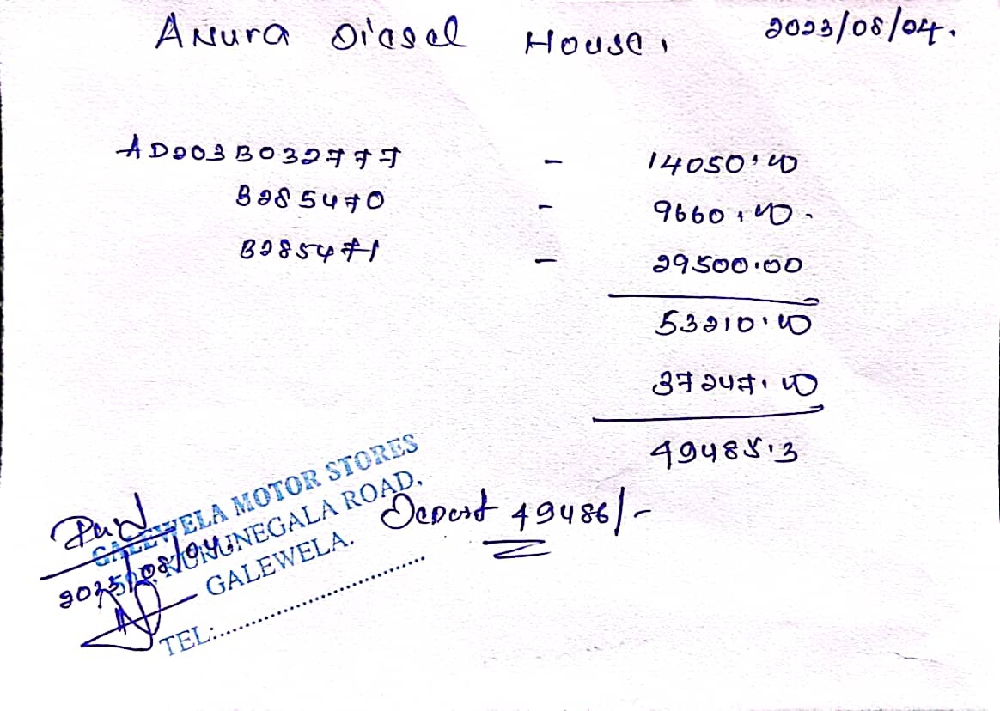 Anura Diesel House.
2023/08/04.
AD203B032777 - 14050.00
B285470 - 9660.00
B285471 - 29500.00
53210.00
37247.00
49485.3
Deposit 49486/-
Paid
2023/08/04.
GALEWELA MOTOR STORES
KURUNEGALA ROAD,
GALEWELA.
TEL:....................................